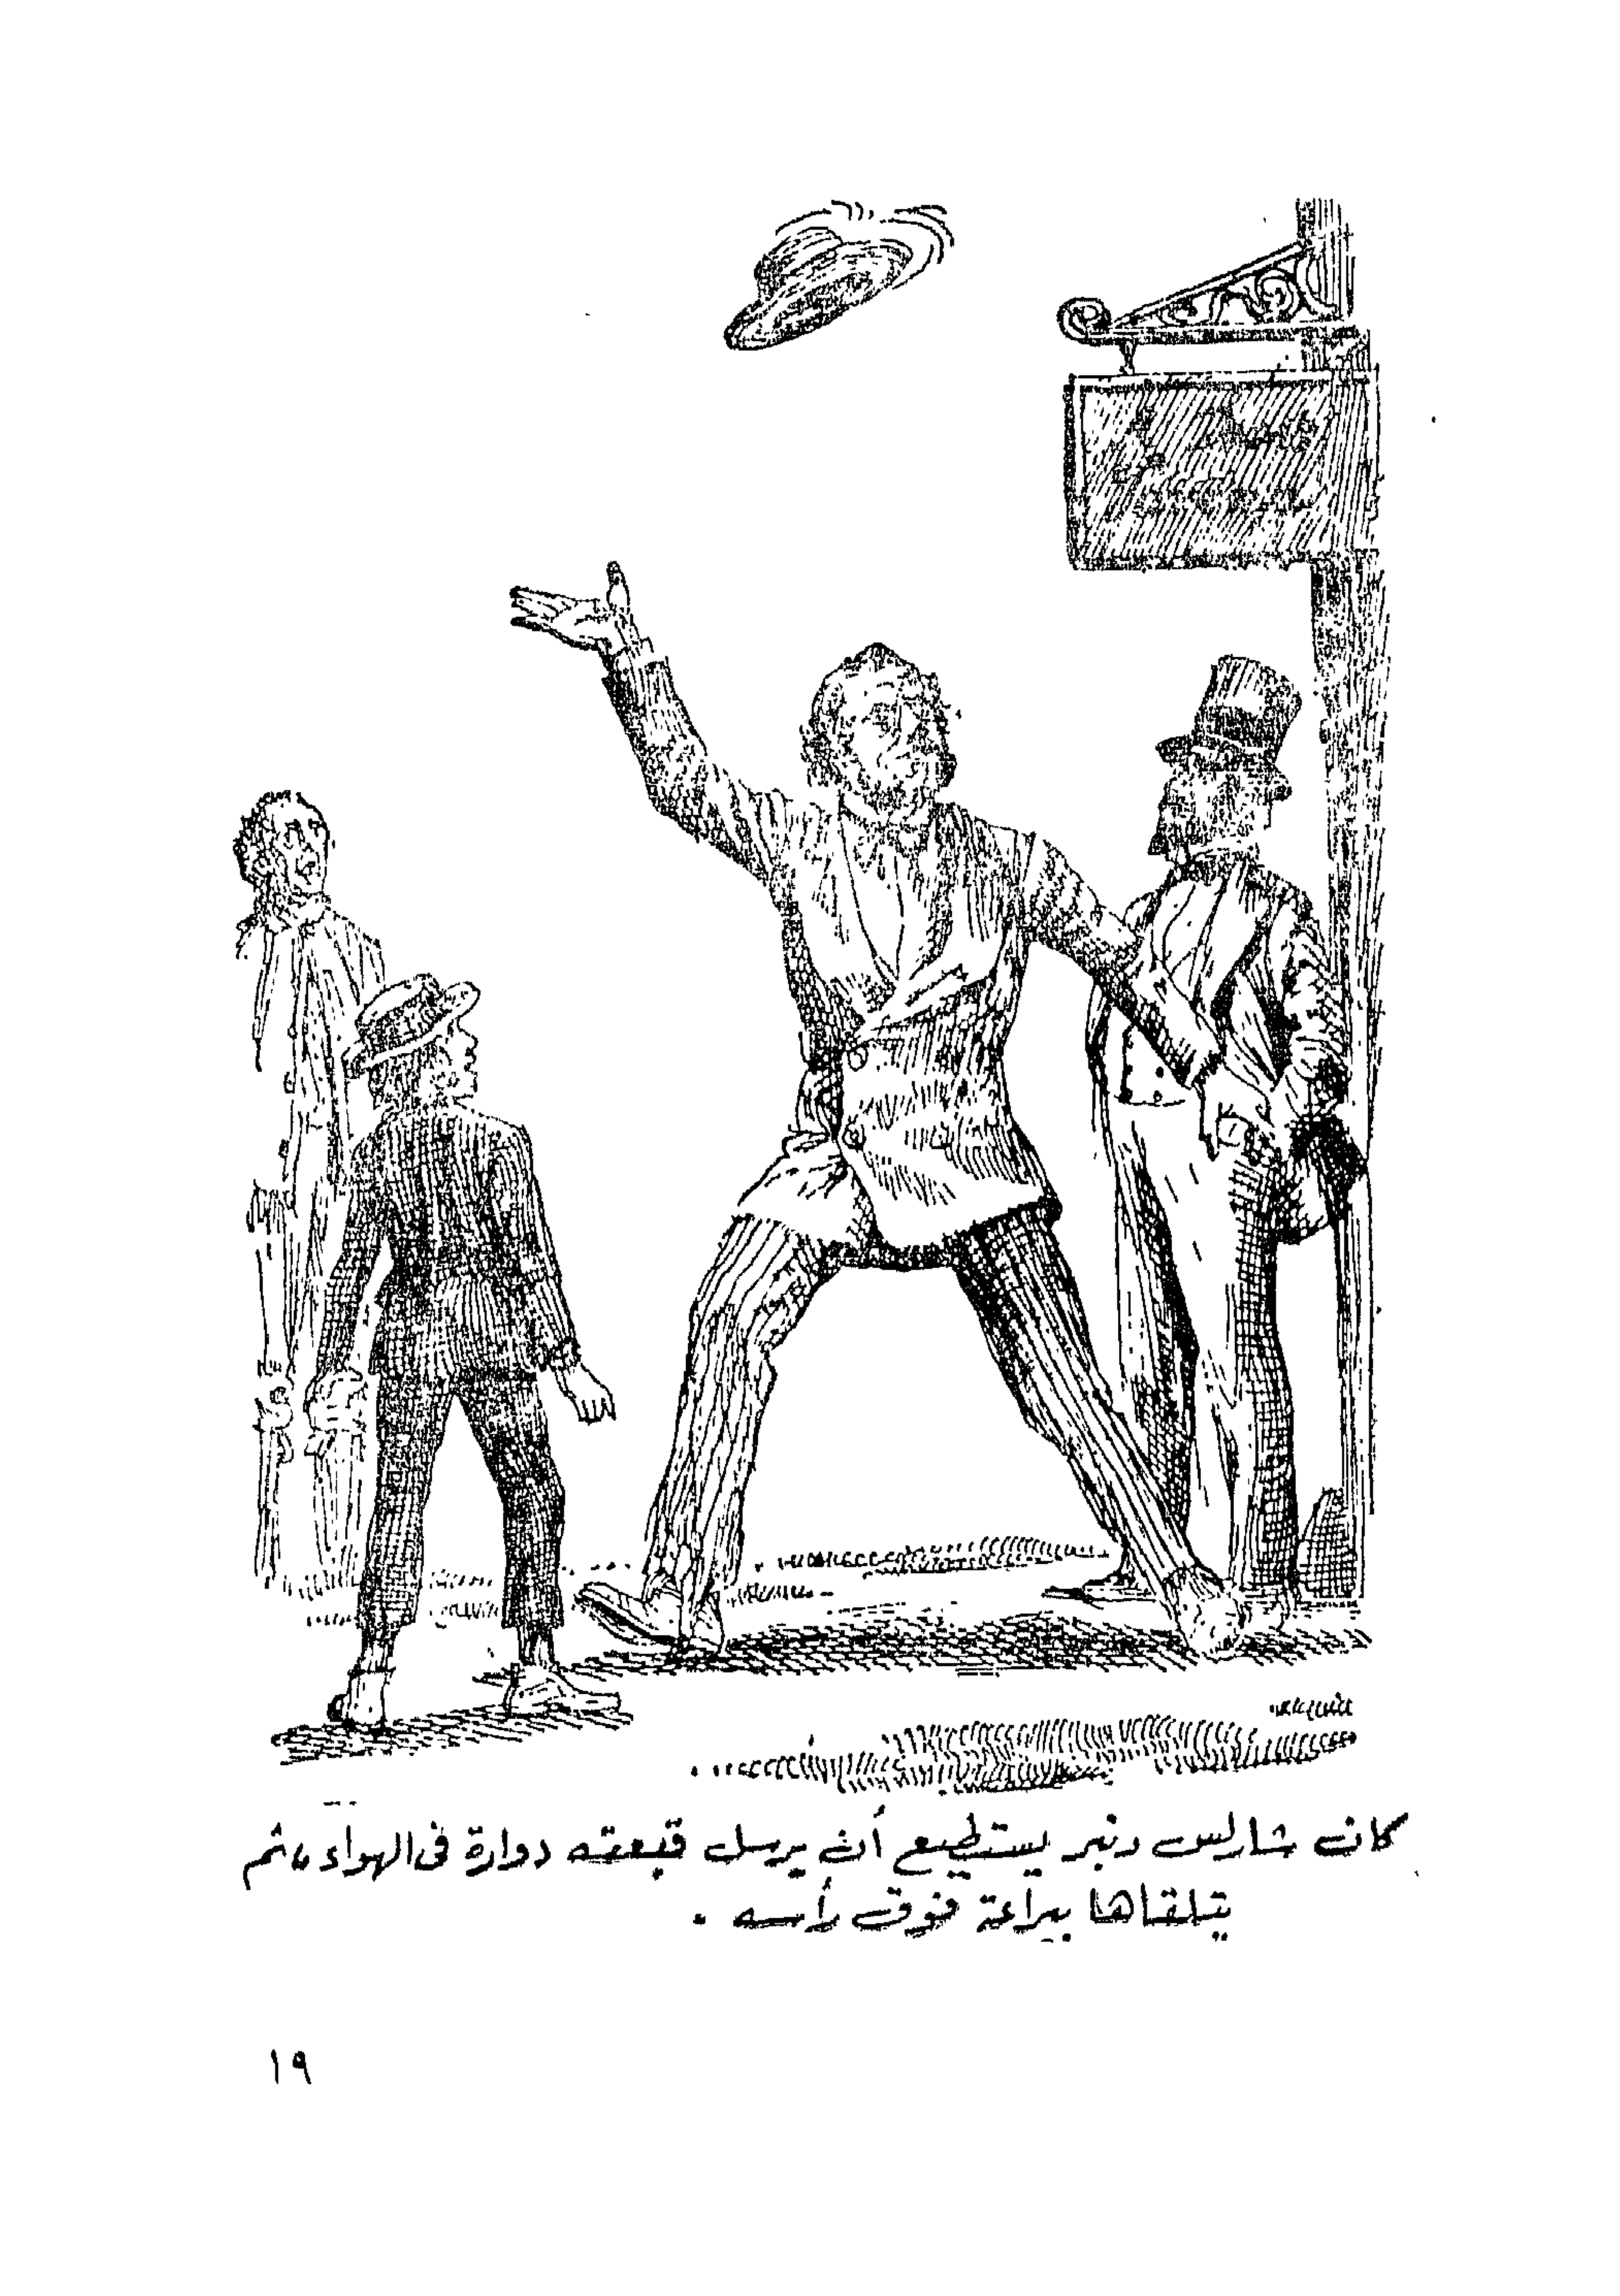 كان شارلس دنبر يستطيع أن يرسل قبعته دوارة فى الهواء، ثم
يتلقاها ببراعة فوق رأسه .
١٩